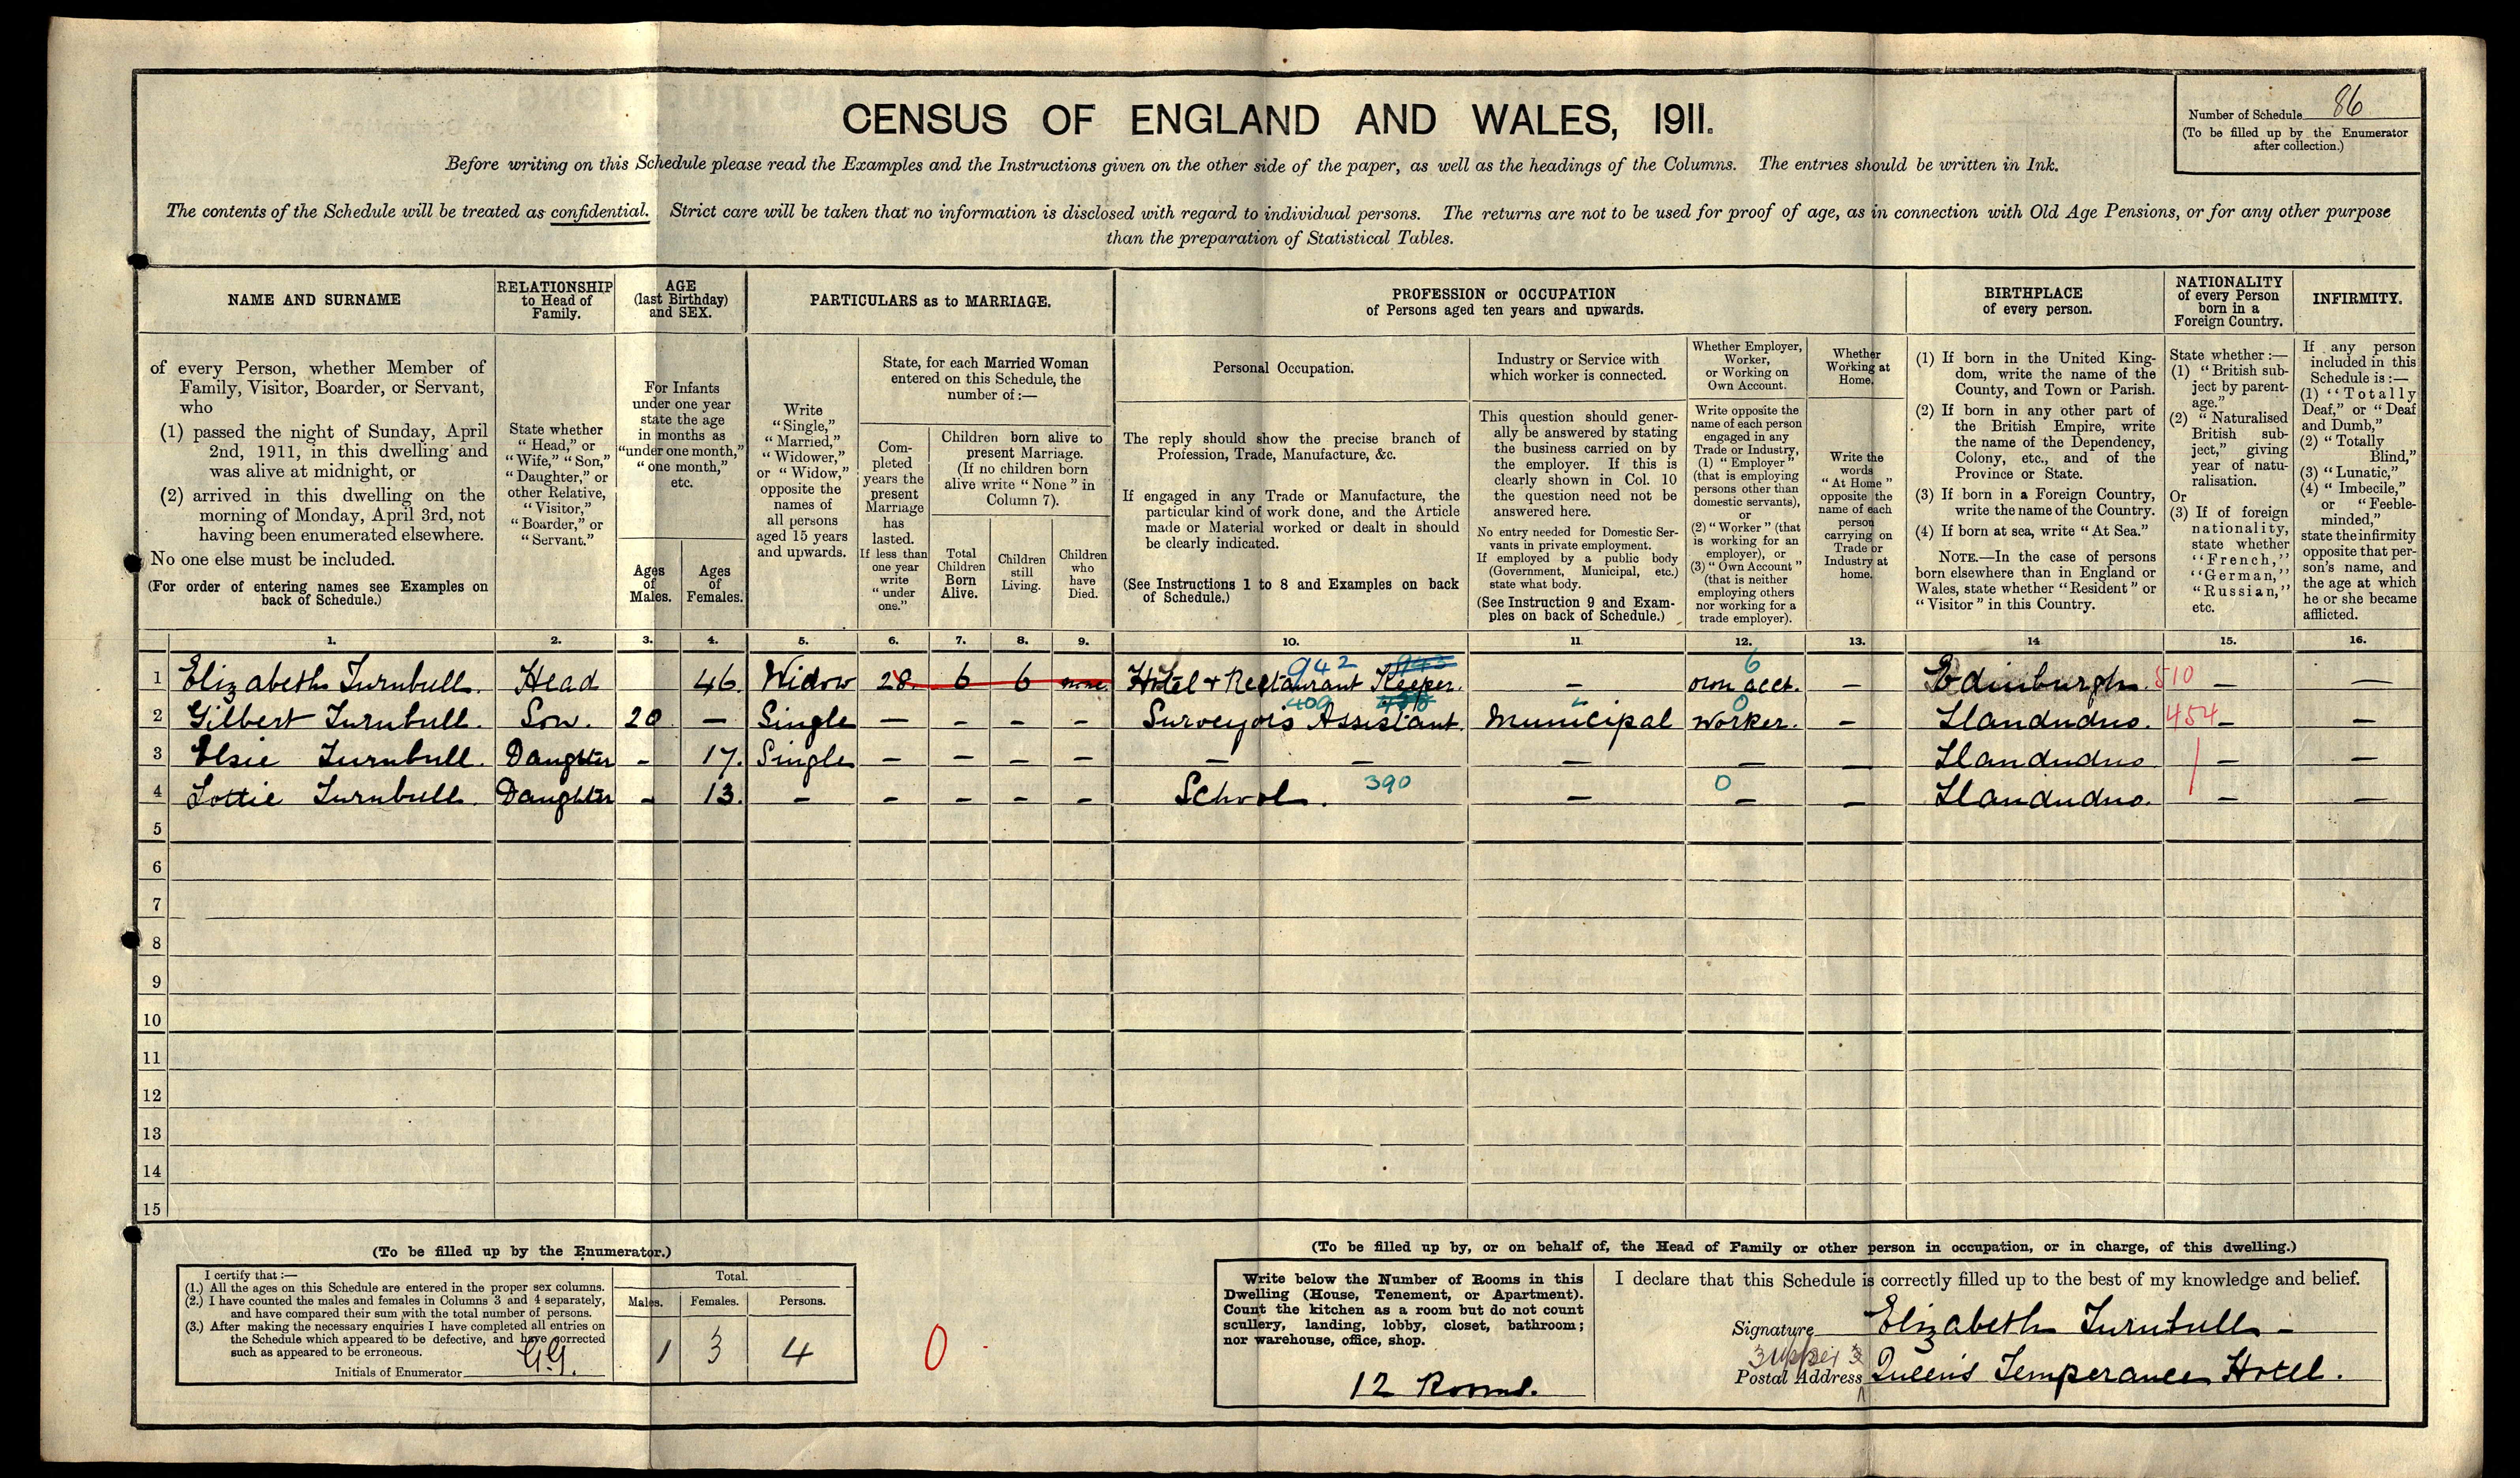 CENSUS OF ENGLAND AND WALES, 1911.
Number of Schedule 86
(To be filled up by the Enumerator
after collection.)
Before writing on this Schedule please read the Examples and the Instructions given on the other side of the paper, as well as the headings of the Columns. The entries should be written in Ink.
The contents of the Schedule will be treated as confidential. Strict care will be taken that no information is disclosed with regard to individual persons. The returns are not to be used for proof of age, as in connection with Old Age Pensions, or for any other purpose
than the preparation of Statistical Tables.
NAME AND SURNAME
of every Person, whether Member of
Family, Visitor, Boarder, or Servant,
who
(1) passed the night of Sunday, April
2nd, 1911, in this dwelling and
was alive at midnight, or
(2) arrived in this dwelling on the
morning of Monday, April 3rd, not
having been enumerated elsewhere.
No one else must be included.
(For order of entering names see Examples on
back of Schedule.)
RELATIONSHIP
to Head of
Family.
State whether
"Head," or
"Wife," "Son,"
"Daughter," or
other Relative,
"Visitor,"
"Boarder," or
"Servant."
AGE
(last Birthday)
and SEX.
For Infants
under one year
state the age
in months as
"under one month,"
"one month,"
etc.
Ages
of
Males.
Ages
of
Females.
PARTICULARS as to MARRIAGE.
Write
"Single,"
"Married,"
"Widower,"
or "Widow,"
opposite the
names of
all persons
aged 15 years
and upwards.
State, for each Married Woman
entered on this Schedule, the
number of:—
Com-
pleted
years the
present
Marriage
has
lasted.
If less than
one year
write
"under
one."
Children born alive to
present Marriage.
(If no children born
alive write "None" in
Column 7).
Total
Children
Born
Alive.
Children
still
Living.
Children
who
have
Died.
PROFESSION or OCCUPATION
of Persons aged ten years and upwards.
Personal Occupation.
The reply should show the precise branch of
Profession, Trade, Manufacture, &c.
If engaged in any Trade or Manufacture, the
particular kind of work done, and the Article
made or Material worked or dealt in should
be clearly indicated.
(See Instructions 1 to 8 and Examples on back
of Schedule.)
Industry or Service with
which worker is connected.
This question should gener-
ally be answered by stating
the business carried on by
the employer. If this is
clearly shown in Col. 10
the question need not be
answered here.
No entry needed for Domestic Ser-
vants in private employment.
If employed by a public body
(Government, Municipal, etc.)
state what body.
(See Instruction 9 and Exam-
ples on back of Schedule.)
Whether Employer,
Worker,
or Working on
Own Account.
Write opposite the
name of each person
engaged in any
Trade or Industry,
(1) "Employer"
(that is employing
persons other than
domestic servants),
or
(2) "Worker" (that
is working for an
employer), or
(3) "Own Account"
(that is neither
employing others
nor working for a
trade employer).
Whether
Working at
Home.
Write the
words
"At Home"
opposite the
name of each
person
carrying on
Trade or
Industry at
home.
BIRTHPLACE
of every person.
(1) If born in the United King-
dom, write the name of the
County, and Town or Parish.
(2) If born in any other part of
the British Empire, write
the name of the Dependency,
Colony, etc., and of the
Province or State.
(3) If born in a Foreign Country,
write the name of the Country.
(4) If born at sea, write "At Sea."
NOTE.—In the case of persons
born elsewhere than in England or
Wales, state whether "Resident" or
"Visitor" in this Country.
NATIONALITY
of every Person
born in a
Foreign Country.
State whether:—
(1) "British sub-
ject by parent-
age."
(2) "Naturalised
British sub-
ject," giving
year of natu-
ralisation.
Or
(3) If of foreign
nationality,
state whether
"French,"
"German,"
"Russian,"
etc.
INFIRMITY.
If any person
included in this
Schedule is:—
(1) "Totally
Deaf," or "Deaf
and Dumb,"
(2) "Totally
Blind,"
(3) "Lunatic,"
(4) "Imbecile,"
or "Feeble-
minded,"
state the infirmity
opposite that per-
son's name, and
the age at which
he or she became
afflicted.
1. 2. 3. 4. 5. 6. 7. 8. 9. 10. 11 12. 13. 14 15. 16.
942
6
1 Elizabeth Turnbull. Head 46. Widow 28. 6 6 none Hotel + Restaurant Keeper. — own acct. — Edinburgh. 510 — —
409
0
2 Gilbert Turnbull. Son. 20 — Single — — — — Surveyors Assistant. Municipal Worker. — Llandudno. 454 — —
3 Elsie Turnbull. Daughter — 17. Single — — — — — — — — — Llandudno — —
4 Lottie Turnbull. Daughter — 13. — — — — — School. 390 — 0 — — Llandudno. — —
5
6
7
8
9
10
11
12
13
14
15
(To be filled up by the Enumerator.)
I certify that:—
(1.) All the ages on this Schedule are entered in the proper sex columns.
(2.) I have counted the males and females in Columns 3 and 4 separately,
and have compared their sum with the total number of persons.
(3.) After making the necessary enquiries I have completed all entries on
the Schedule which appeared to be defective, and have corrected
such as appeared to be erroneous.
Initials of Enumerator G.G.
Total.
Males. Females. Persons.
1 3 4
0
(To be filled up by, or on behalf of, the Head of Family or other person in occupation, or in charge, of this dwelling.)
Write below the Number of Rooms in this
Dwelling (House, Tenement, or Apartment).
Count the kitchen as a room but do not count
scullery, landing, lobby, closet, bathroom;
nor warehouse, office, shop.
12 Rooms.
I declare that this Schedule is correctly filled up to the best of my knowledge and belief.
Signature Elizabeth Turnbull —
Postal Address Queen's Temperance Hotel.